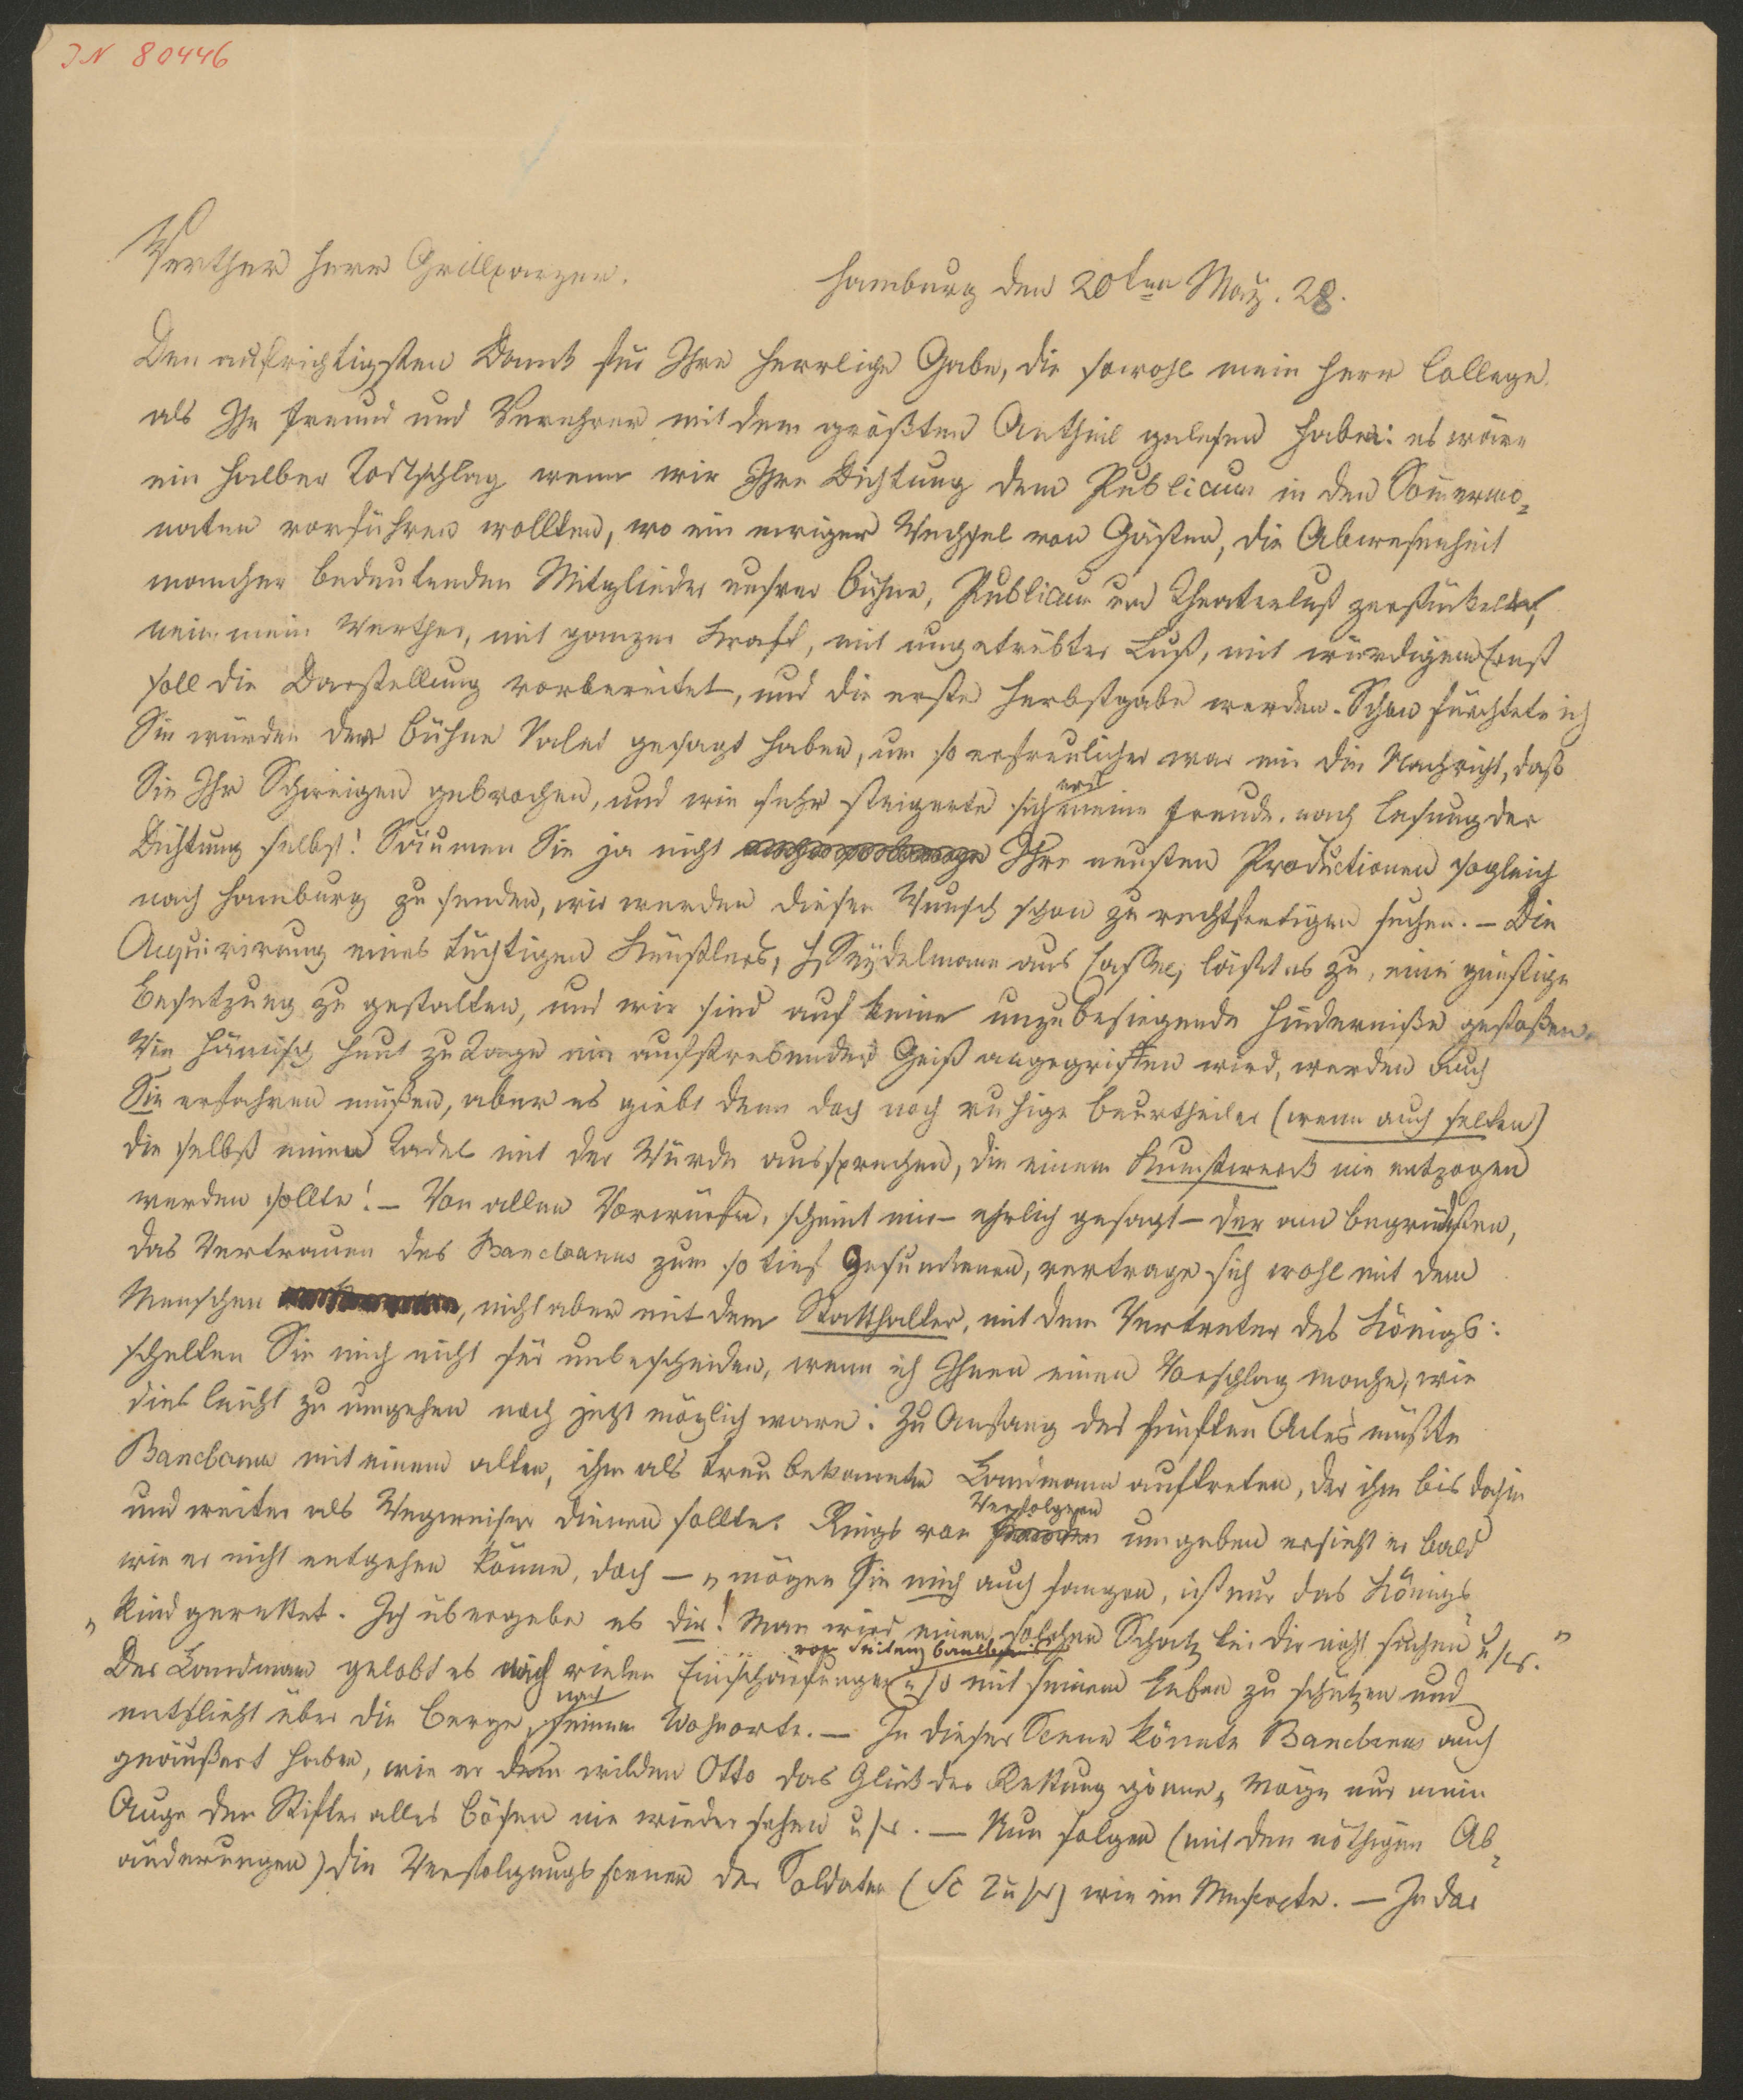 IN 80446
Werther Herr Grillparzer.
Hamburg den 20ten May. 28.
Den aufrichtigsten Dank für Ihre herrliche Gabe, die sowohl mein Herr College
als Ihr Freund und Verehrer mit dem größten Antheil gelesen haben: es wäre
ein halber Todtschlag wenn wir Ihre Dichtung dem Publicum in den Sommermo-
naten vorführen wollten, wo ein ewiger Wechsel von Gästen, die Abwesenheit
mancher bedeutenden Mitglieder unsrer Bühne, Publicum und Theaterlust zerstückelt,
nein mein Werther, mit ganzer Kraft, mit ungetrübter Lust, mit würdigem Ernst
soll die Darstellung vorbereitet, und die erste Herbstgabe werden. Schon fürchtete ich
Sie würden der Bühne Valet gesagt haben, um so erfreulicher war mir die Nachricht, daß
Sie Ihr Schweigen gebrochen, und wie sehr steigerte sich erst meine Freude nach Lesung der
Dichtung selbst! Säumen Sie ja nicht Ihre neusten Productionen sogleich
nach Hamburg zu senden, wir werden diesen Wunsch schon zu rechtfertigen suchen. – Die
Acquirirung eines tüchtigen Künstlers, H Seydelmann aus Cassel, läßt es zu, eine günstige
Besetzung zu gestalten, und wir sind auf keine unzubesiegende Hinderniße gestoßen.
Wie hämisch heut zu Tage ein aufstrebender Geist angegriffen wird, werden auch
Sie erfahren müßen, aber es giebt denn doch noch ruhige Beurtheiler (wenn auch selten)
die selbst einen Tadel mit der Würde aussprechen, die einem Kunstwerk nie entzogen
werden sollte! – Von allen Vorwürfen, scheint mir – ehrlich gesagt – der am begründsten,
das Vertrauen des Bancbanus zum so tief Gesunkenen, vertrage sich wohl mit dem
Menschen, nicht aber mit dem Statthalter, mit dem Vertreter des Königs:
schelten Sie mich nicht für unbescheiden, wenn ich Ihnen einen Vorschlag mache, wie
dies leicht zu umgehen noch jetzt möglich ware: Zu Anfang des fünften Actes müßte
Bancbanus mit einem alten, ihm als treu bekannten Landmann auftreten, der ihm bis dahin
und weiter als Wegweiser dienen sollte. Rings von Verfolgern umgeben ersieht er bald
wie er nicht entgehen könne, doch – „mögen Sie mich auch fangen, ist nur das Königs
„kind gerettet. Ich übergebe es dir! Man wird einen solchen Schatz bei dir nicht suchen" u s w."
Der Landmann gelobt es nach vielen Einschärfungen von Seiten Bancbans es mit seinem Leben zu schützen und
entflieht über die Berge nach seinem Wohnorte. – In dieser Scene könnte Bancbanus auch
geäußert haben, wie er dem wilden Otto das Glück der Rettung gönne, „Möge nur mein
Auge den Stifter alles Bösen nie wieder sehen u s w. – Nun folgen (mit den nöthigen Ab-
änderungen) die Verfolgungsscenen der Soldaten (Sc 2 u s w) wie im Mnscrpte. – In der